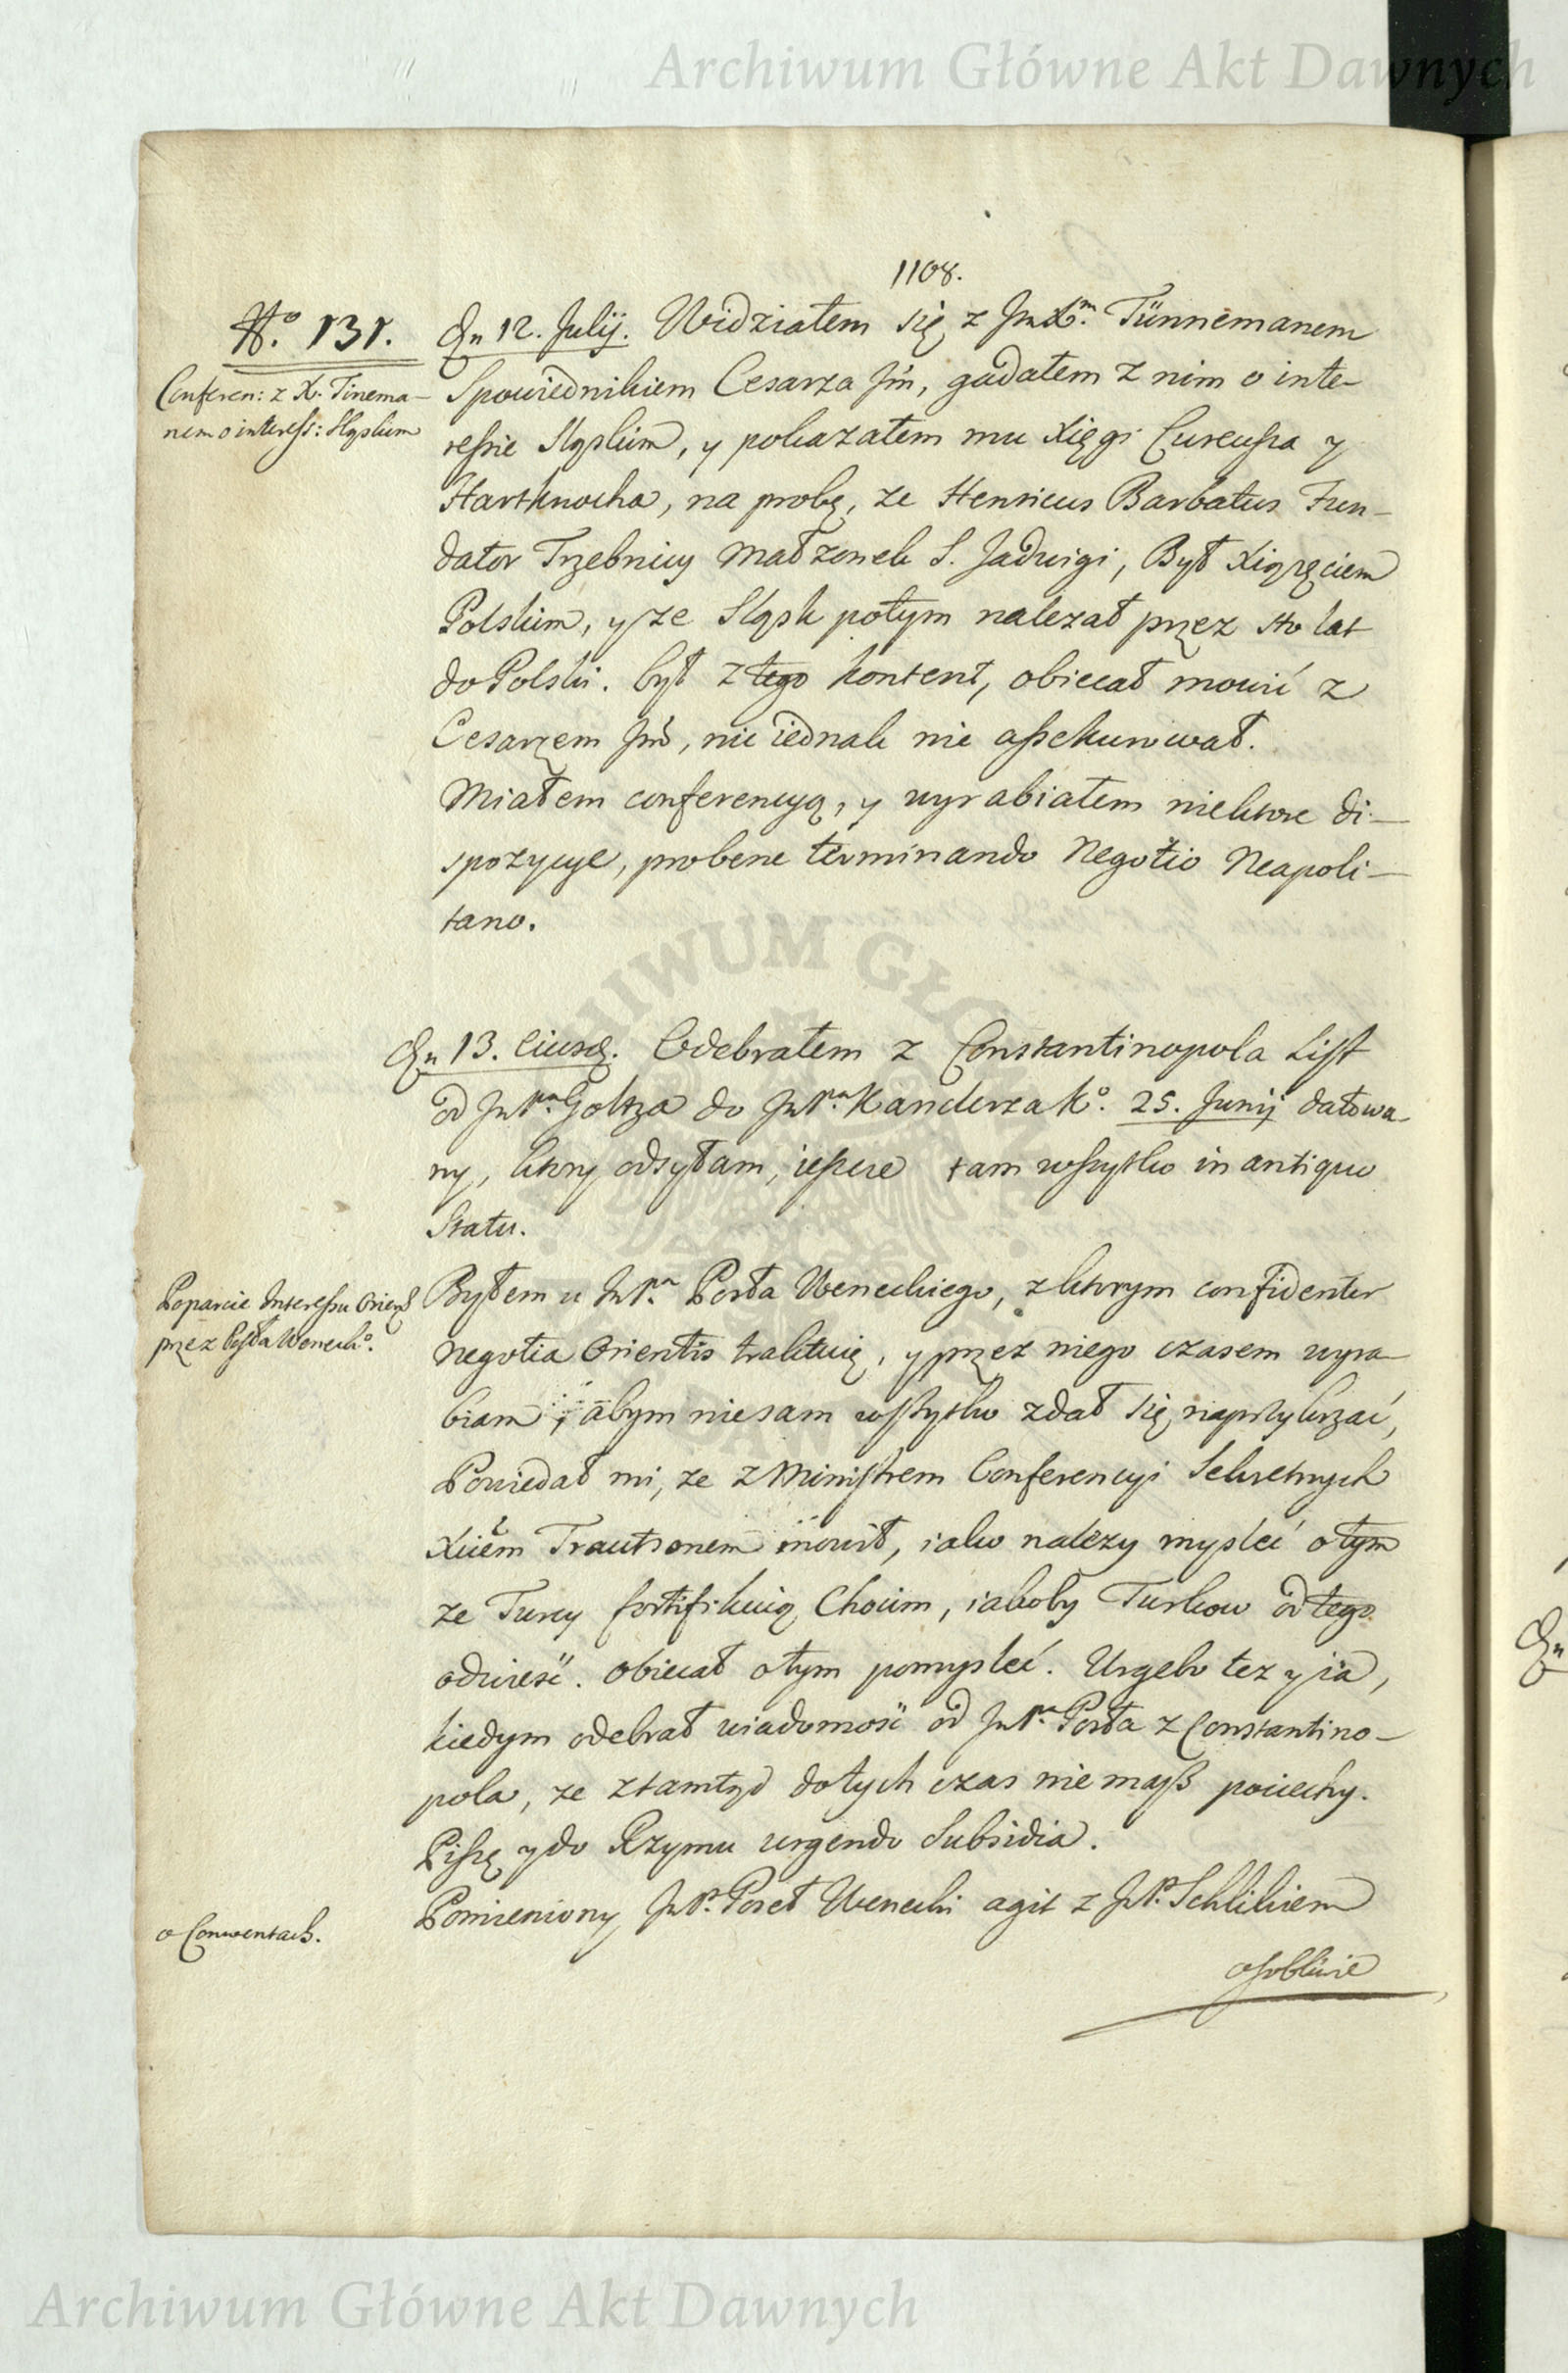 Archiwum Główne Akt Dawnych
1108.
No. 131.
Conferen: z X. Tinema-
nem o interess: Sląskim
Dn 12. Julij. Widziałem się z JmXm. Tünnemanem
Spowiednikiem Cesarza Jm, gadałem z nim o inte-
ressie Sląskim, y pokazałem mu Xięgi Cureussa y
Hartknocha, na probę, ze Henricus Barbatus Fun-
dator Trzebnicy Małzonek S. Jadwigi, Był Xiązęciem
Polskim, y ze Sląsk potym nalezał przez sto lat
do Polski. był z tego kontent, obiecał mowić z
Cesarzem Jm, nic iednak nie assekurował.
Miałem conferencyą, y wyrabiałem niektore di-
spozycye, pro bene terminando Negotio Neapoli-
tano.
Dn 13. eiusd. Odebrałem z Constantinopola List
od JmPna Goltza do JmPna Kanclerza Ko. 25. Junij datowa-
ny, ktory odsyłam, ieszcze tam wszytko in antiquo
Statu.
Poparcie Interessu Orient
przez Posła Weneck°.
Byłem u JmPna Posła Weneckiego, z ktorym confidenter
negotia Orientis traktuię, y przez niego czasem wyra-
biam, abym nie sam wszytko zdał się naprzykrzać,
Powiedał mi, ze z Ministrem Conferencyi Sekretnych
Xciem Trautsonem mowił, iako nalezy mysleć o tym
ze Turcy fortifikuią Chocim, iakoby Turkow od tego
odwieść. obiecał o tym pomysleć. Urgebo tez y ia,
kiedym odebrał wiadomość od JmPna Posła z Constantino-
pola, ze ztamtąd do tych czas nie masz pociechy.
Piszę y do Rzymu urgendo Subsidia.
o Conventach.
Pomieniony JmP. Poseł Wenecki agit z JmP. Schlikiem
osobliwie
Archiwum Główne Akt Dawnych